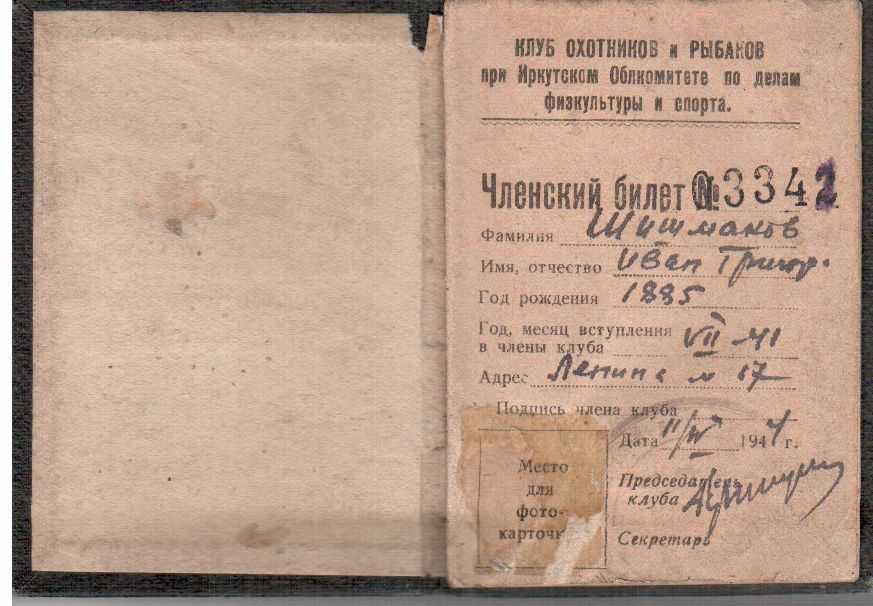 КЛУБ ОХОТНИКОВ и РЫБАКОВ
при Иркутском Облкомитете по делам
физкультуры и спорта.
Членский билет № 3342
Фамилия Шишмаков
Имя, отчество Иван Григор.
Год рождения 1885
Год, месяц вступления
в члены клуба VII-41
Адрес Ленина 17
Подпись члена клуба
Дата 11/IV 1944 г.
Место
для
фото-
карточк
Председатель
клуба
Секретарь